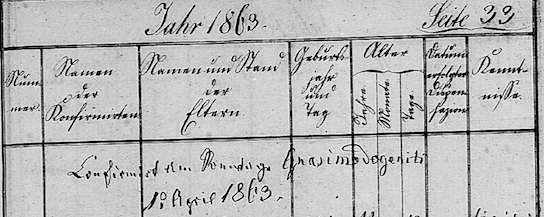 Jahr 1863.
Seite 33
Num
mer.
Namen
der
Konfirmirten
Namen und Stand
der
Eltern
Geburts
jahr
und
Tag
Alter
Jahre.
Monate.
Tage.
Datum
erfolgter
Dispen
sazion
Kennt-
nisse.
Confirmirt am Sonntage Quasimodogeniti
April 1863.